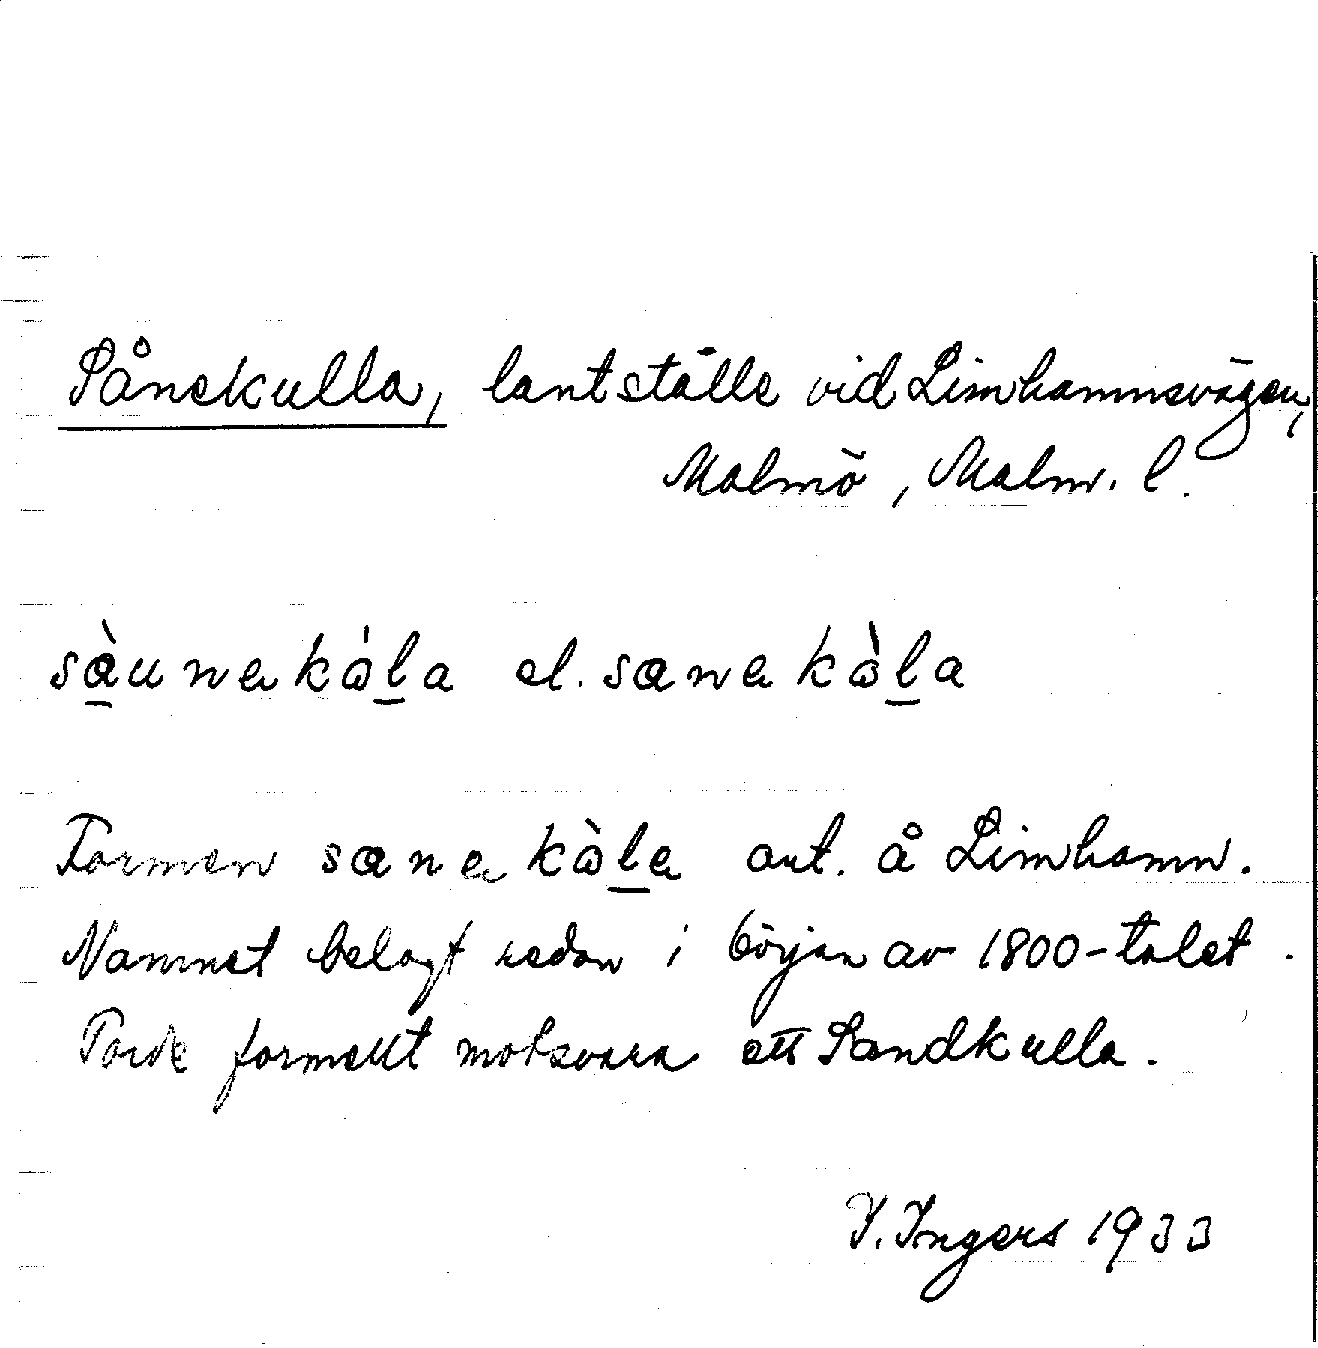 Sånekulla, lantställe vid Limhamnsvägen,
Malmö, Malm. l.
sàunekòla el. sanekòla
Formen sanekòla ant. å Limhamn.
Namnet belagt redan i början av 1800-talet.
Torde formellt motsvara ett Sandkulla.
I. Ingers 1933